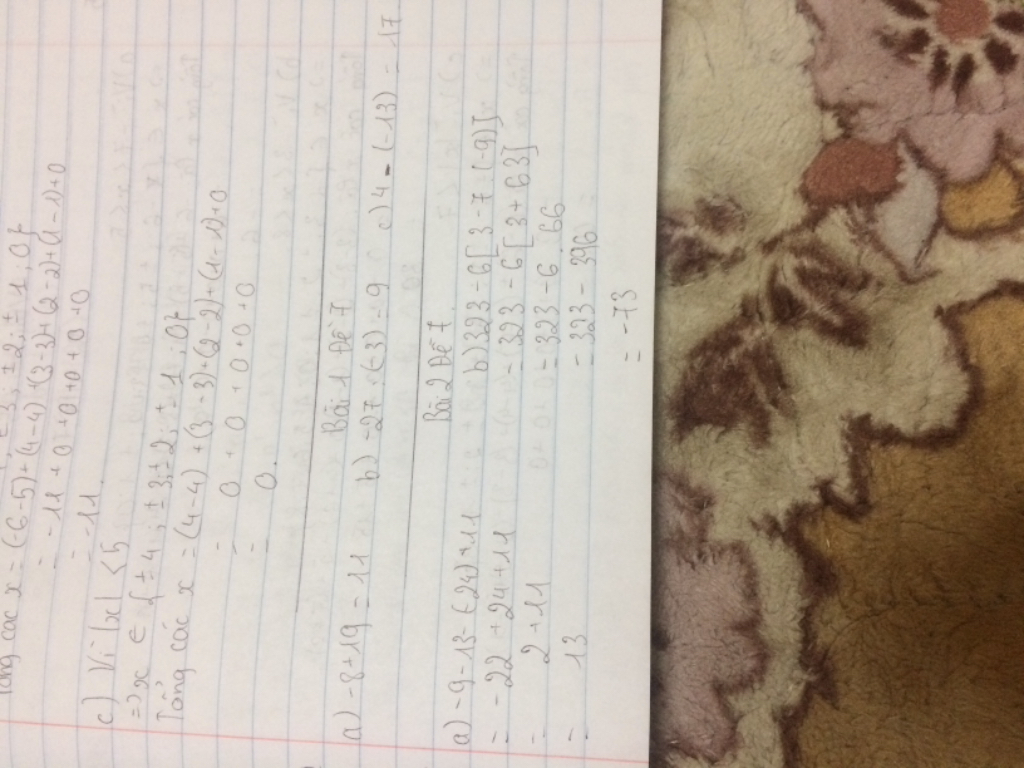 Tổng các x = (-6-5)+(4-4)+(3-3)+(2-2)+(1-1)+0
= -11+0+0+0+0+0
= -11.
c) Vì |x| < 5
=> x ∈ { ± 4; ± 3; ± 2; ± 1; 0}
Tổng các x = (4-4)+(3-3)+(2-2)+(1-1)+0
= 0+0+0+0+0
= 0.
Bài 1 Đề 7
a) -8+19 = 11 b) -27:(-3) = 9 c) 4 - (-13) = 17
Bài 2 Đề 7
a) -9-13-(-24)+11 b) 323-6[3-7.(-9)]
= -22+24+11 = 323-6[3+63]
= 2+11 = 323-6.66
= 13 = 323-396
= -73